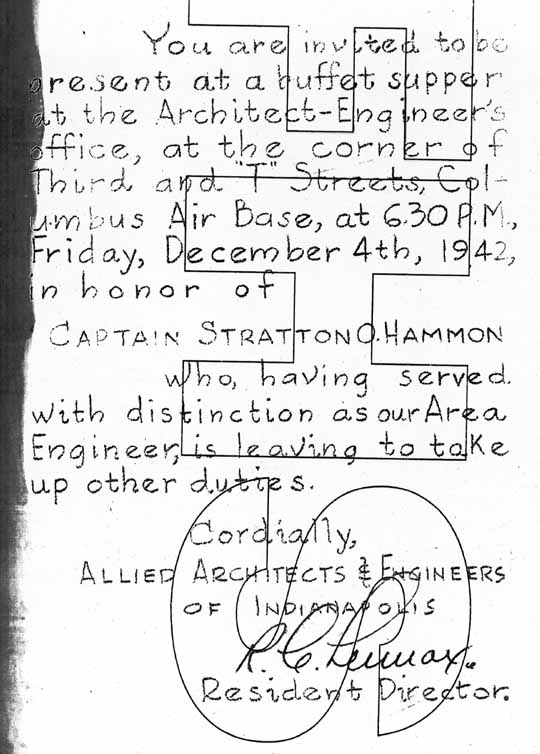 You are invited to be
present at a buffet supper
at the Architect-Engineer's
office, at the corner of
Third and "T" Streets, Col-
umbus Air Base, at 6.30 P.M.,
Friday, December 4th, 1942,
in honor of
CAPTAIN STRATTON O. HAMMON
who, having served
with distinction as our Area
Engineer, is leaving to take
up other duties.
Cordially,
ALLIED ARCHITECTS & ENGINEERS
OF INDIANAPOLIS
R. C. Lennox.
Resident Director.